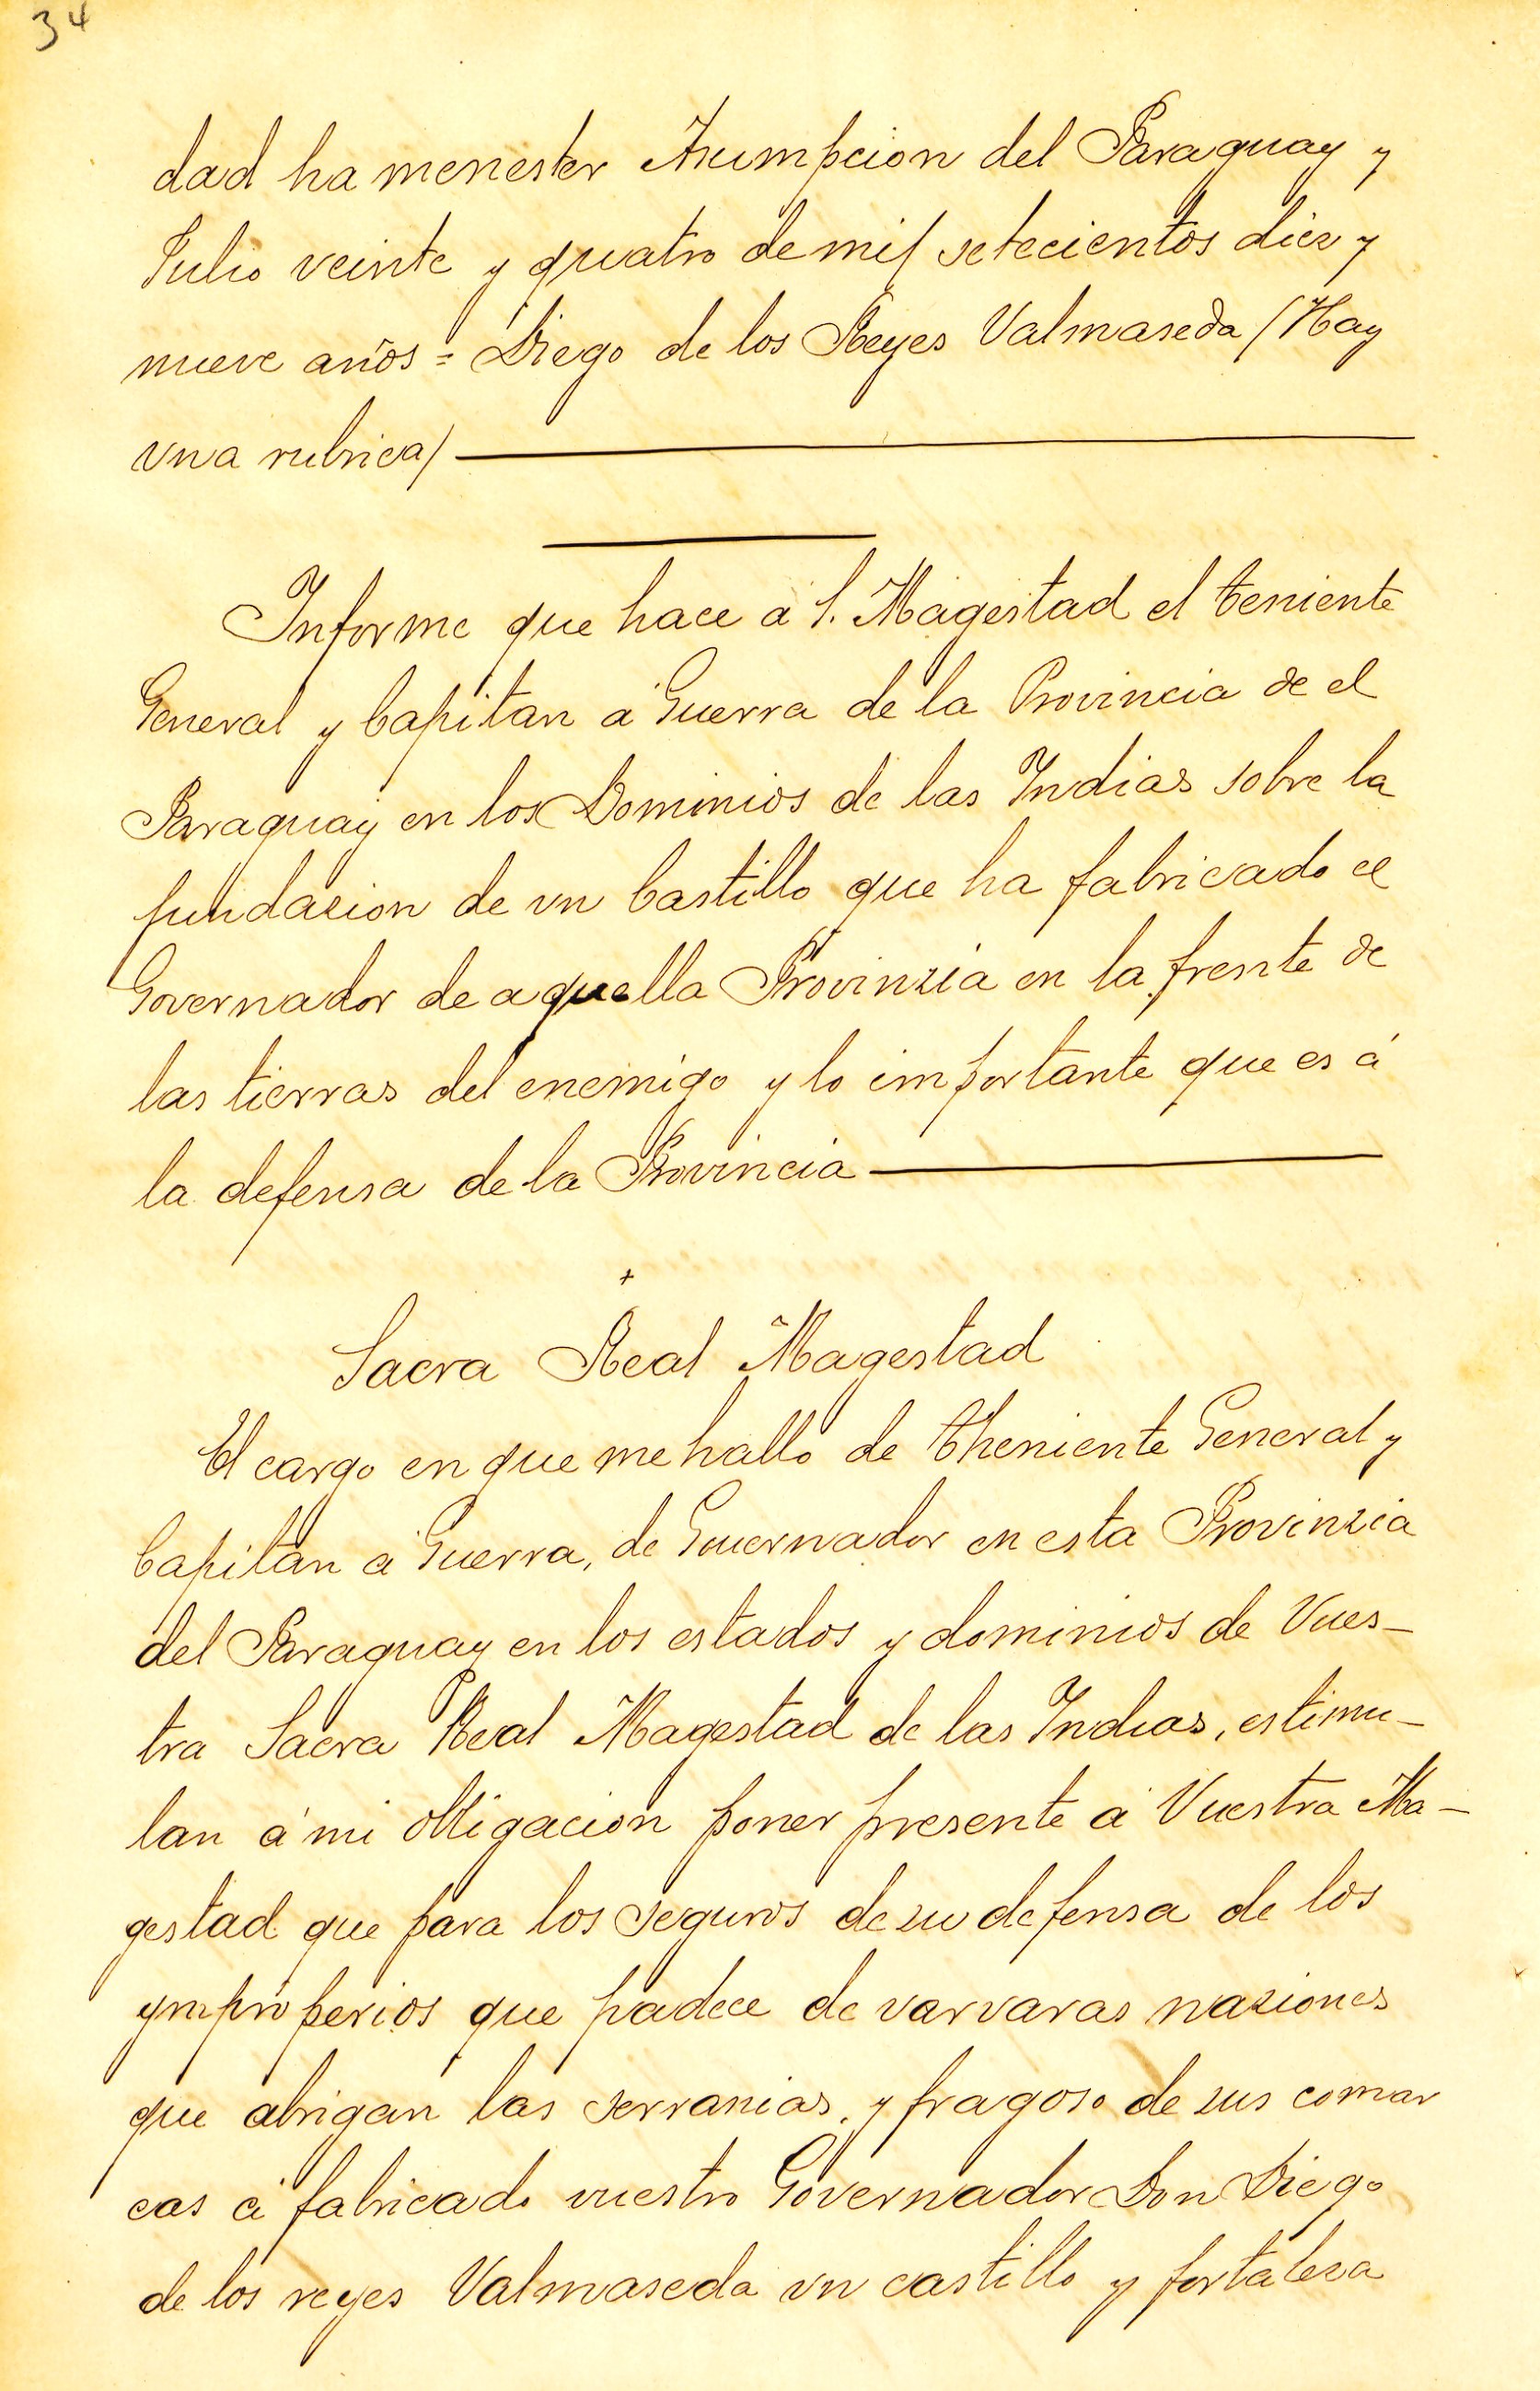 34
dad ha menester Asumpcion del Paraguay y
Julio veinte y quatro de mil setecientos diez y
nueve años = Diego de los Reyes Valmaseda /Hay
vna rubrica/
Informe que hace á S. Magestad el teniente
General y Capitan á Guerra de la Provincia de el
Paraguay en los Dominios de las Indias sobre la
fundazion de vn Castillo que ha fabricado el
Governador de aquella Provinzia en la frente de
las tierras del enemigo y lo importante que es á
la defensa de la Provincia
+
Sacra Real Magestad
El cargo en que me hallo de Theniente General y
Capitan á Guerra, de Gouernador en esta Provinzia
del Paraguay en los estados y dominios de Vues-
tra Sacra Real Magestad de las Indias, estimu-
lan á mi obligacion poner presente á Vuestra Ma-
gestad que para los seguros de su defensa de los
ymproperios que padece de varvaras naziones
que abrigan las serranias, y fragoso de sus comar
cas á fabricado vuestro Governador Don Diego
de los reyes Valmaseda vn castillo y fortaleza